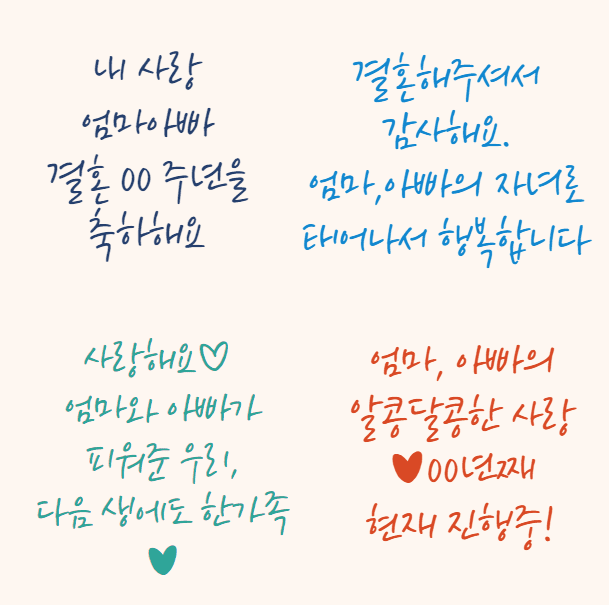 내 사랑
엄마아빠
결혼 00 주년을
축하해요
결혼해주셔서
감사해요.
엄마,아빠의 자녀로
태어나서 행복합니다
사랑해요♡
엄마와 아빠가
피워준 우리,
다음 생에도 한가족
♥
엄마, 아빠의
알콩달콩한 사랑
♥00년째
현재 진행중!